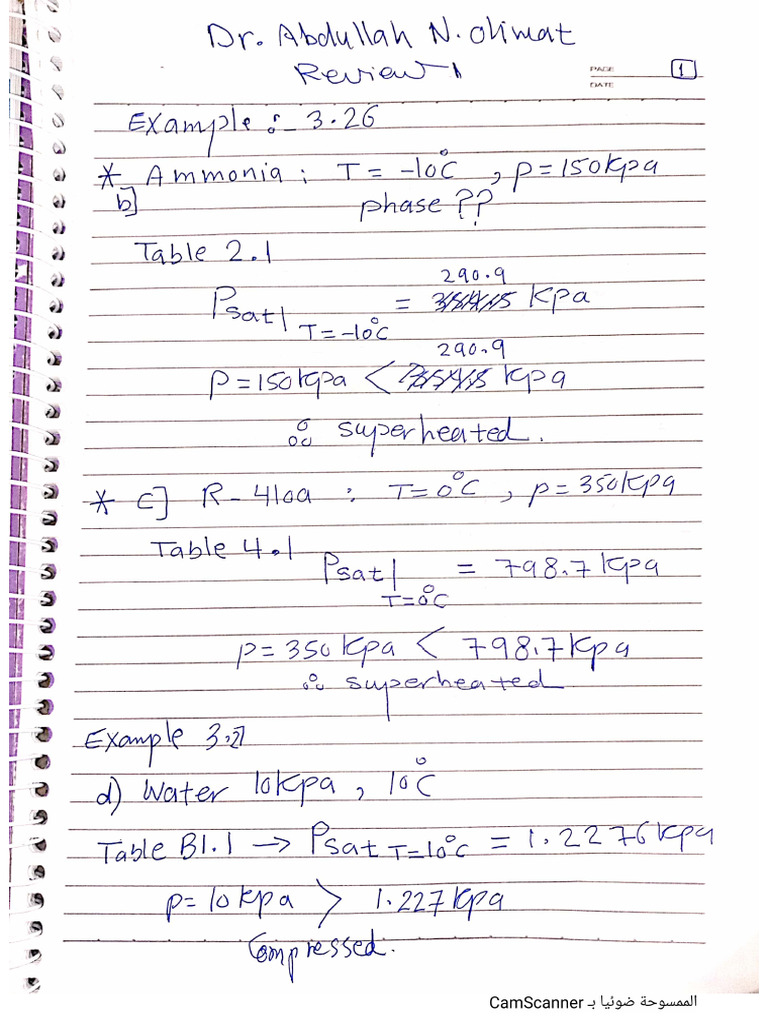 Dr. Abdullah N. Olimat
Review 1
PAGE 1
DATE
Example :- 3.26
* Ammonia : T = -10°C , p = 150 kpa
b] phase ??
Table 2.1
290.9
Psat| T = -10°C = kpa
290.9
P = 150 kpa < kpa
∴ superheated.
* c] R-410a : T = 0°C , p = 350 kpa
Table 4.1
Psat| T = 0°C = 798.7 kpa
p = 350 kpa < 798.7 kpa
∴ superheated
Example 3.27
d) Water 10 kpa , 10°C
Table B1.1 → Psat T=10°C = 1.2276 kpa
p = 10 kpa > 1.227 kpa
Compressed.
الممسوحة ضوئيا بـ CamScanner